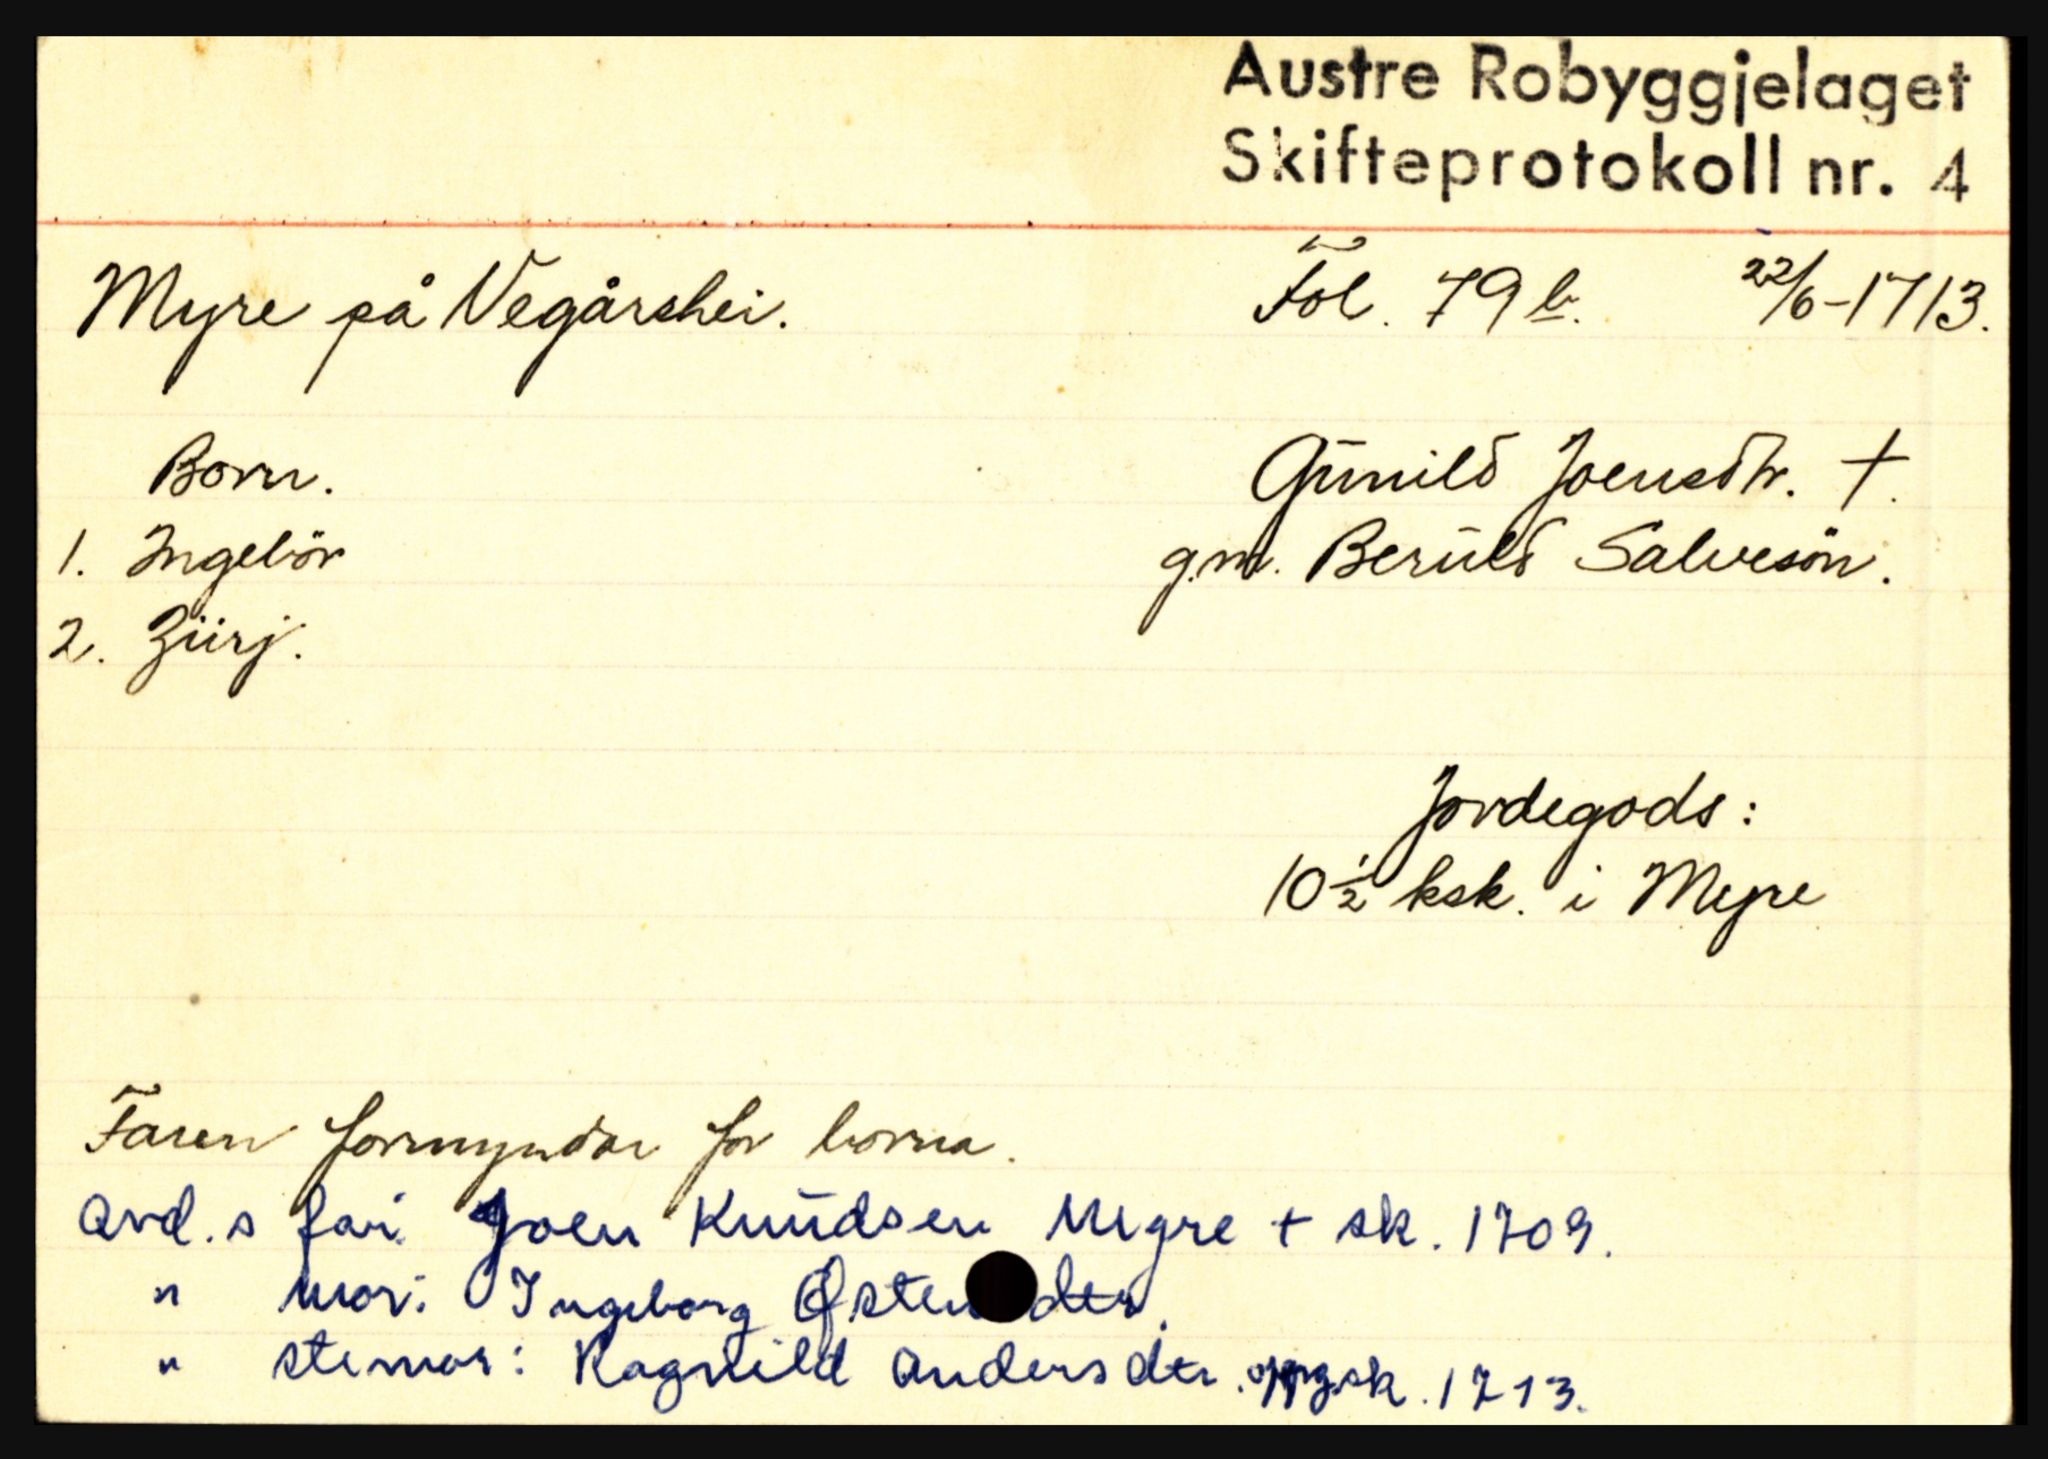 Austre Robyggjelaget
Skifteprotokoll nr. 4
Myre på Vegårshei. Fol. 79 b. 22/6-1713.
Born. Gunild Joensdtr. +.
1. Ingebör g.m. Beruld Salvesön.
2. Ziirj.
Jordegods:
10 1/2 ksk. i Myre
Faren formyndar for borna.
Avd.s far: Joen Knudsen Myre + sk. 1709.
" mor: Ingeborg Østen dtr.
" stemor: Ragnild Andersdtr. sk. 1713.